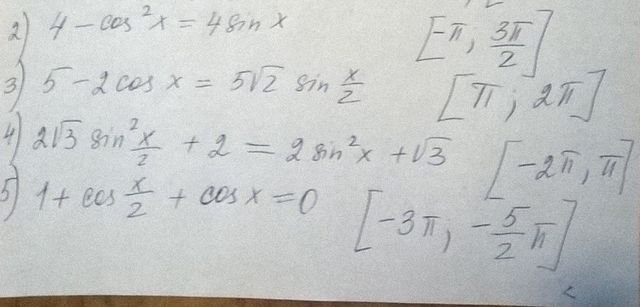 2) 4 - cos²x = 4 sin x [-π, 3π/2]
3) 5 - 2 cos x = 5√2 sin x/2 [π; 2π]
4) 2√3 sin² x/2 + 2 = 2 sin²x + √3 [-2π, π]
5) 1 + cos x/2 + cos x = 0 [-3π, -5/2 π]